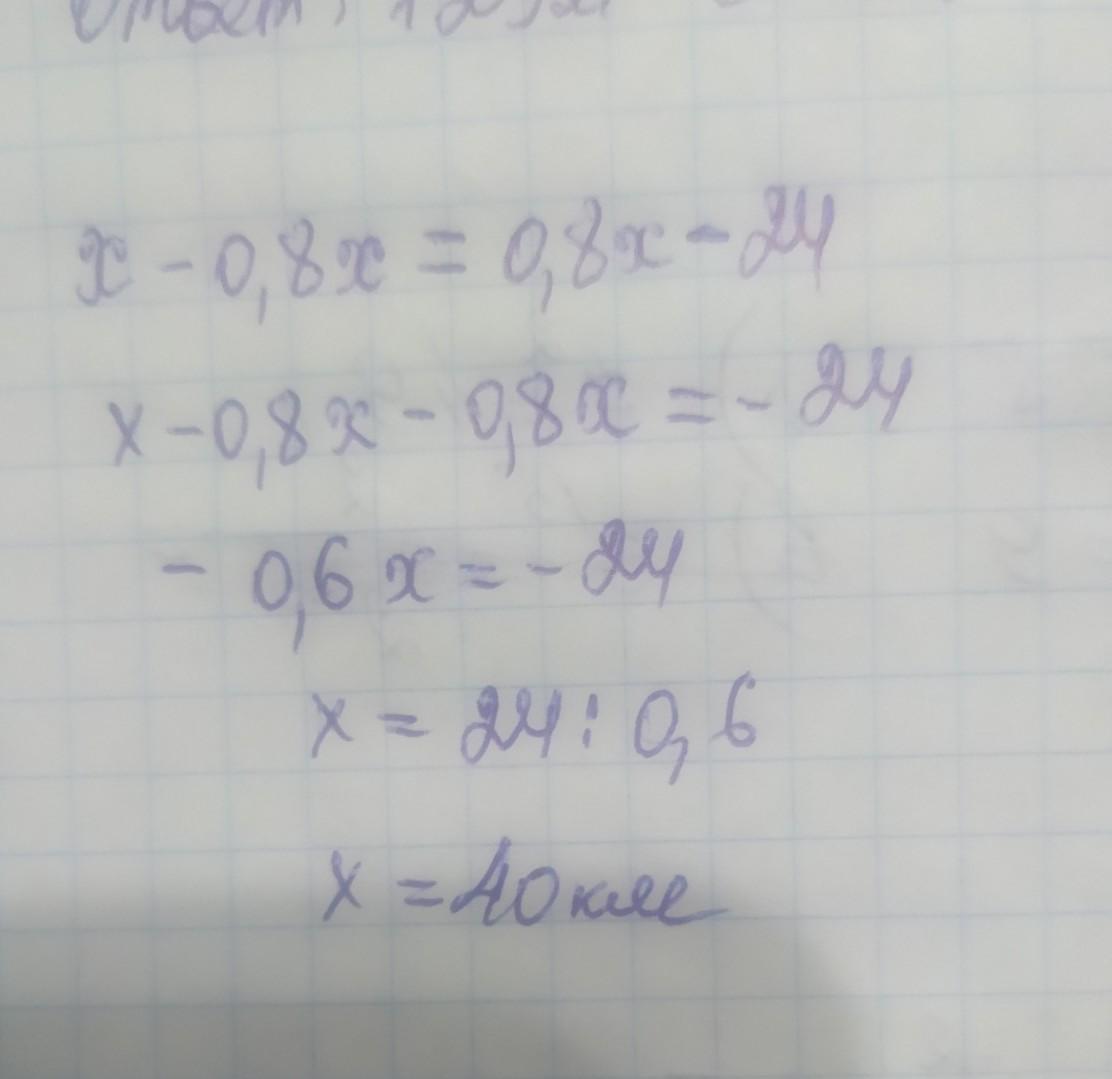 x - 0,8x = 0,8x - 24
x - 0,8x - 0,8x = - 24
- 0,6x = - 24
x = 24 : 0,6
x = 40 км